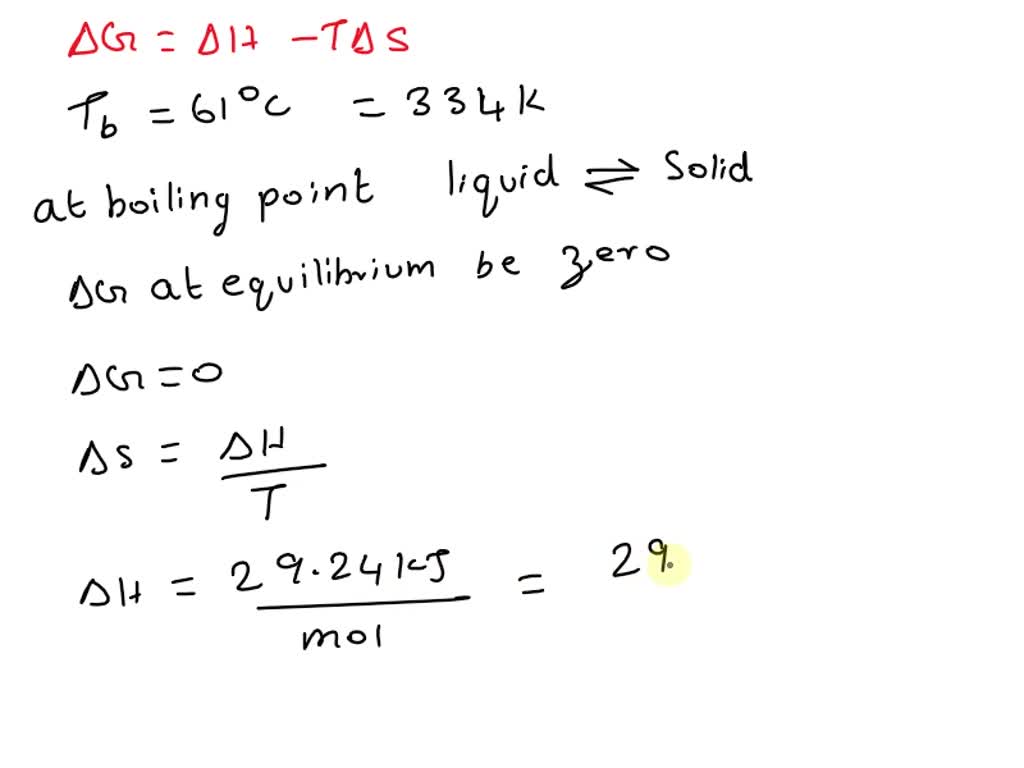 ΔG = ΔH - TΔS
T_b = 61°C = 334K
at boiling point liquid ⇌ Solid
ΔG at equilibrium be zero
ΔG = 0
ΔS = ΔH / T
ΔH = 29.24 kJ / mol = 29.